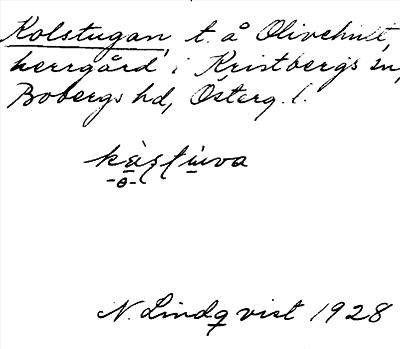 Kolstugan, t. å Olivehult,
herrgård i Kristbergs sn,
Bobergs hd, Österg. l.
N. Lindqvist 1928